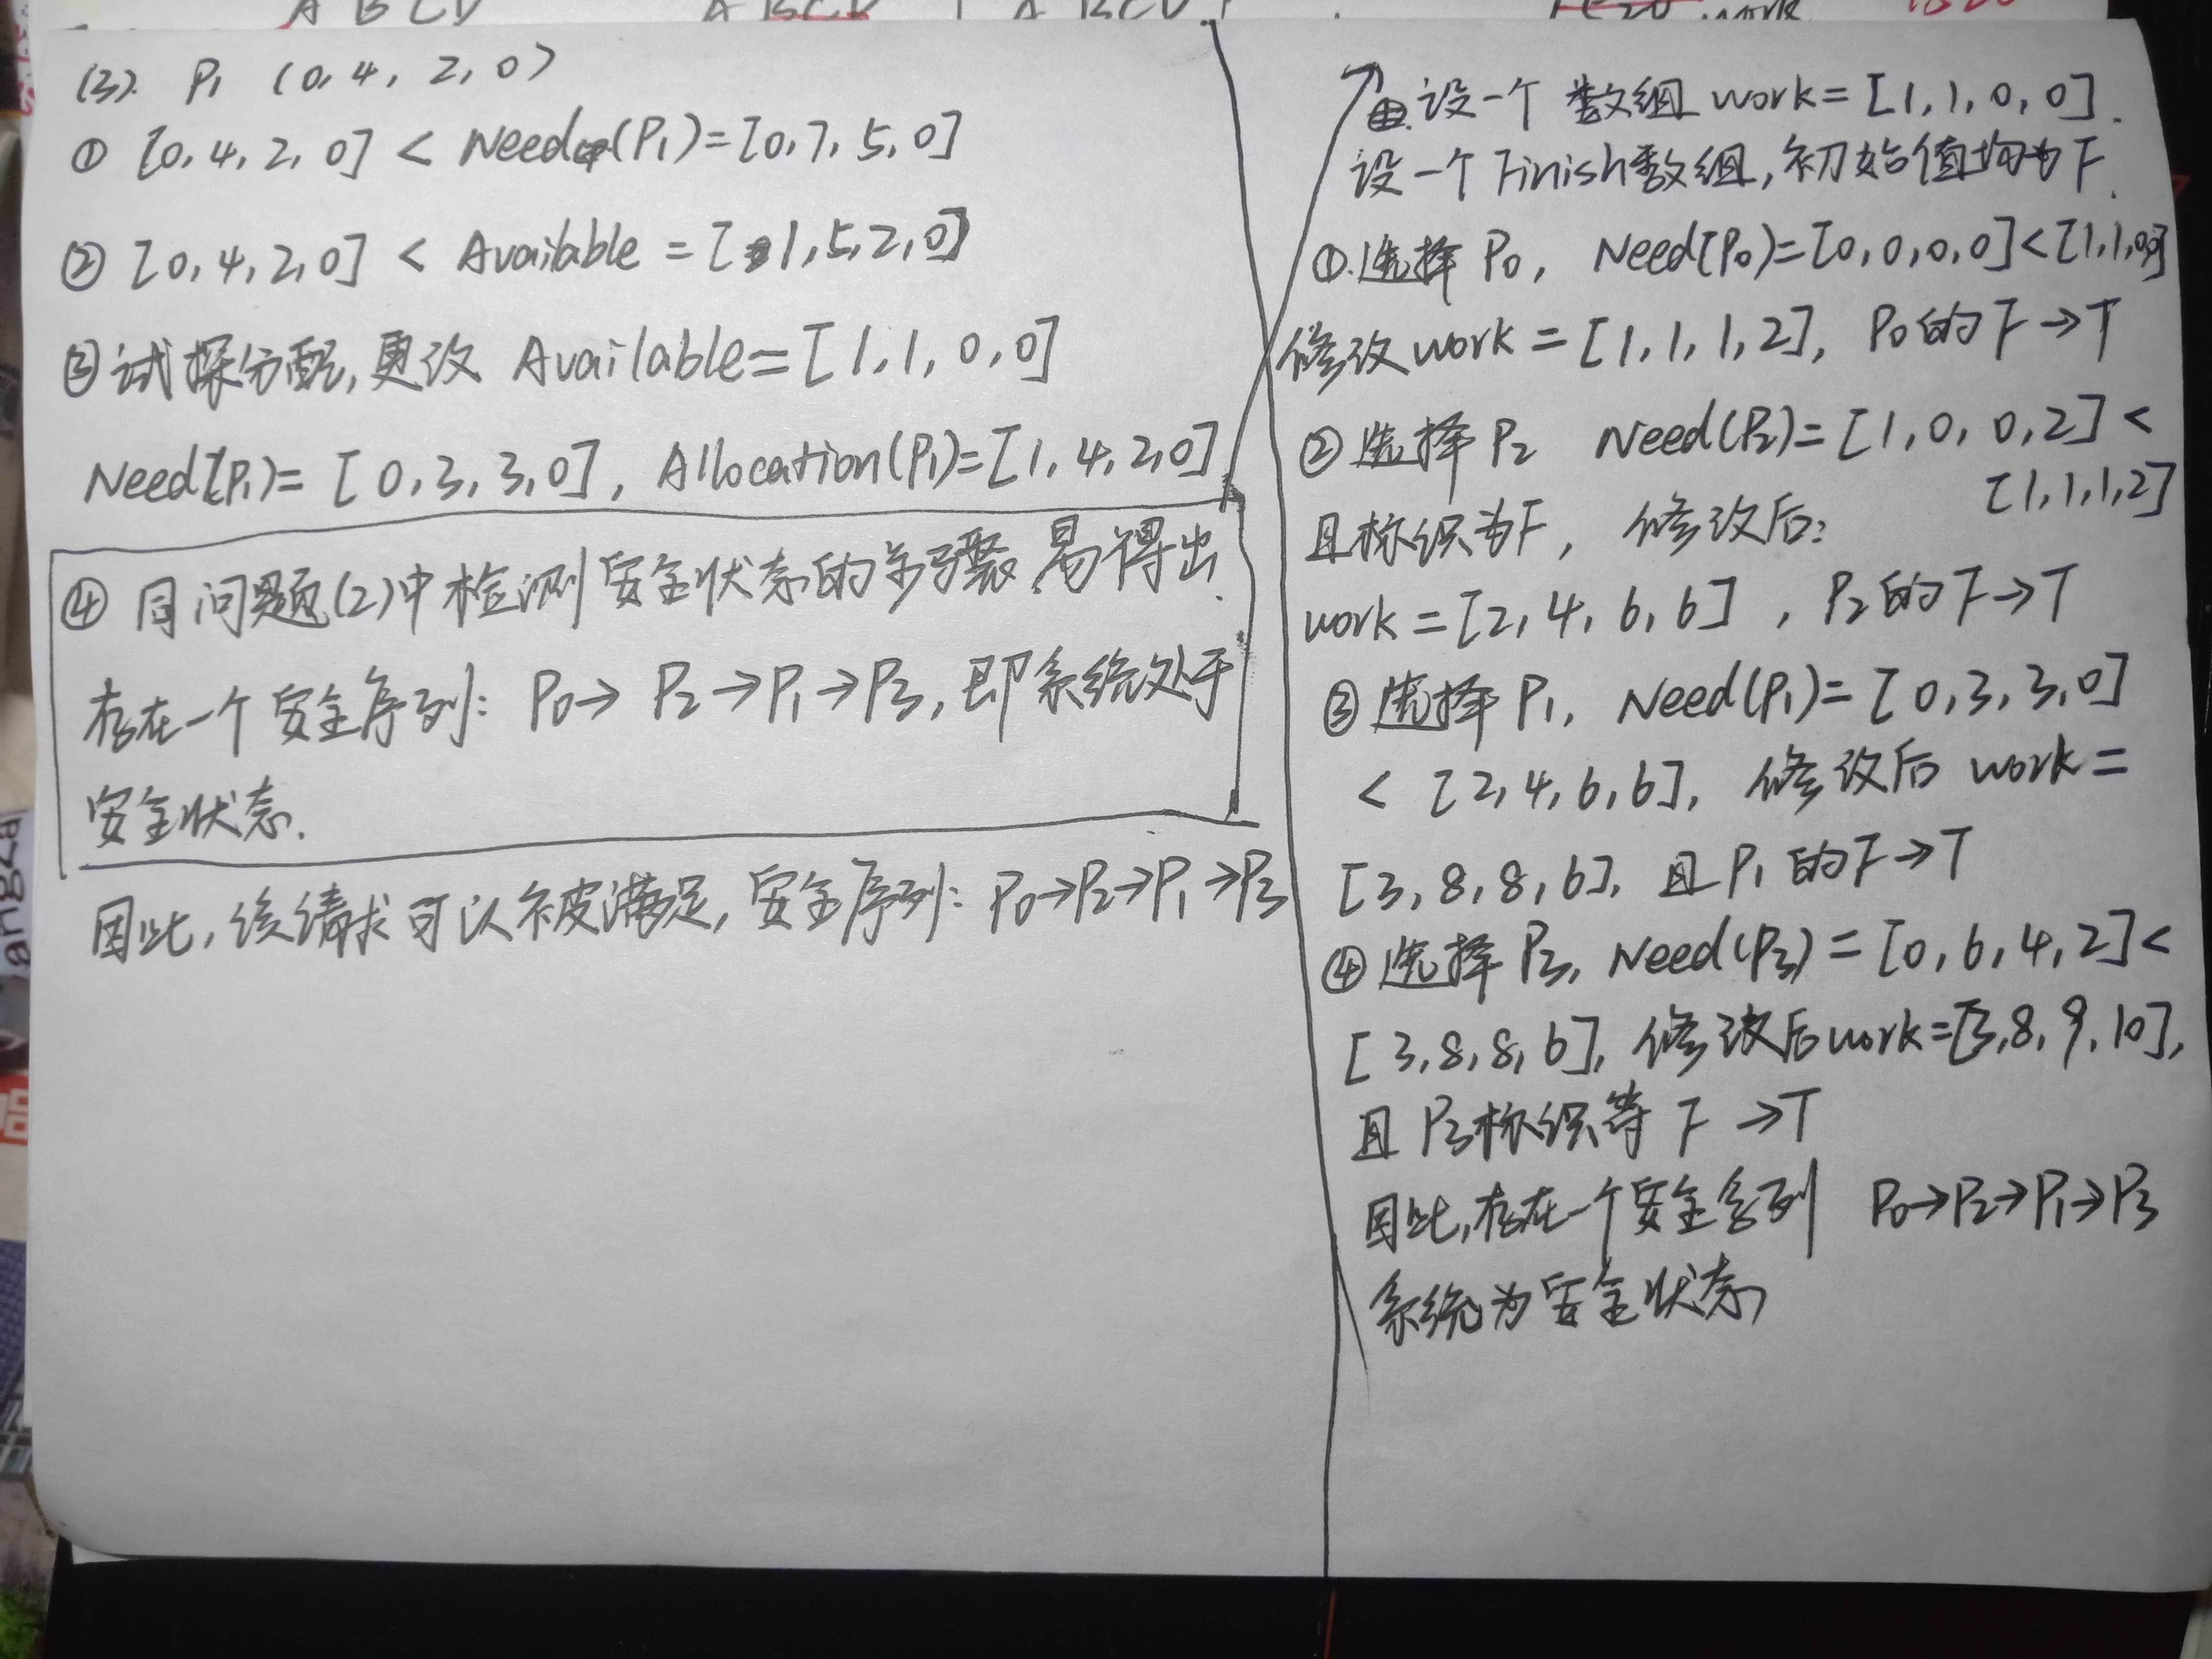 (3). P1 (0, 4, 2, 0)
① [0, 4, 2, 0] < Need(P1)=[0, 7, 5, 0]
② [0, 4, 2, 0] < Available = [1, 5, 2, 0]
③试探分配,更改 Available=[1, 1, 0, 0]
Need[P1)=[0, 3, 3, 0], Allocation(P1)=[1, 4, 2, 0]
④ 同问题(2)中检测安全状态的步骤易得出
存在一个安全序列: P0→P2→P1→P3,即系统处于
安全状态.
因此,该请求可以被满足,安全序列: P0→P2→P1→P3
设一个数组 work=[1, 1, 0, 0].
设一个Finish数组,初始值均为F.
①.选择P0, Need(P0)=[0, 0, 0, 0]<[1, 1, 0, 0]
修改work=[1, 1, 1, 2], P0的F→T
②选择P2 Need(P2)=[1, 0, 0, 2]<
[1, 1, 1, 2]
且标识为F, 修改后:
work=[2, 4, 6, 6], P2的F→T
③选择P1, Need(P1)=[0, 3, 3, 0]
< [2, 4, 6, 6], 修改后 work=
[3, 8, 8, 6], 且P1的F→T
④选择P3, Need(P3)=[0, 6, 4, 2]<
[3, 8, 8, 6], 修改后work=[3, 8, 9, 10],
且P3标识等F→T
因此,存在一个安全序列 P0→P2→P1→P3
系统为安全状态